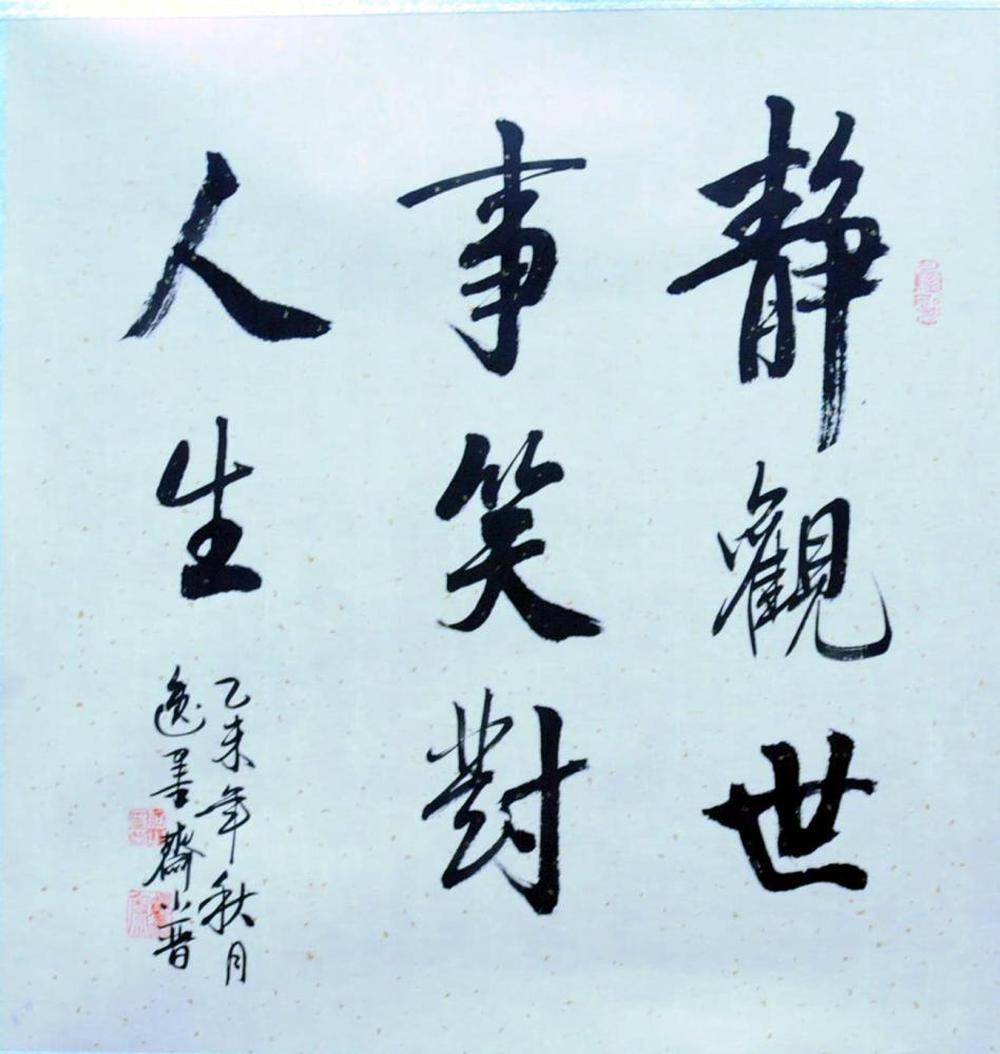 靜觀世
事笑對
人生
乙未年秋月
逸墨齋小晋